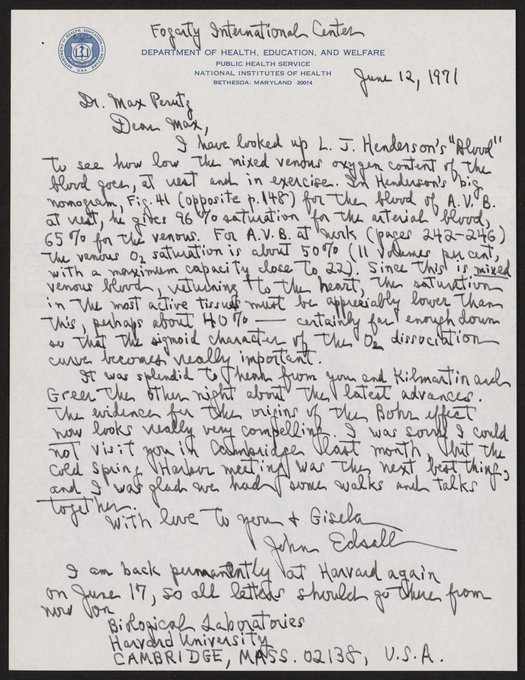 Fogarty International Center
DEPARTMENT OF HEALTH, EDUCATION, AND WELFARE
PUBLIC HEALTH SERVICE
NATIONAL INSTITUTES OF HEALTH
BETHESDA, MARYLAND 20014
June 12, 1971
Dr. Max Perutz
Dear Max,
I have looked up L. J. Henderson's "Blood"
to see how low the mixed venous oxygen content of the
blood goes, at rest and in exercise. In Henderson's big
nomogram, Fig. 41 (opposite p. 148) for the blood of A.V.B.
at rest, he gives 96% saturation for the arterial blood,
65% for the venous. For A.V.B. at work (pages 242-246)
the venous O2 saturation is about 50% (11 volumes per cent,
with a maximum capacity close to 22). Since this is mixed
venous blood, returning to the heart, the saturation
in the most active tissues must be appreciably lower than
this, perhaps about 40% — certainly far enough down
so that the sigmoid character of the O2 dissociation
curve becomes really important.
It was splendid to hear from you and Kilmartin and
Greer the other night about the latest advances.
The evidence for the origins of the Bohr effect
now looks really very compelling. I was sorry I could
not visit you in Cambridge last month, but the
Cold Spring Harbor meeting was the next best thing,
and I was glad we had some walks and talks
together.
With love to you + Gisela
John Edsall
I am back permanently at Harvard again
on June 17, so all letters should go there from
now on
Biological Laboratories
Harvard University
CAMBRIDGE, MASS. 02138, U.S.A.